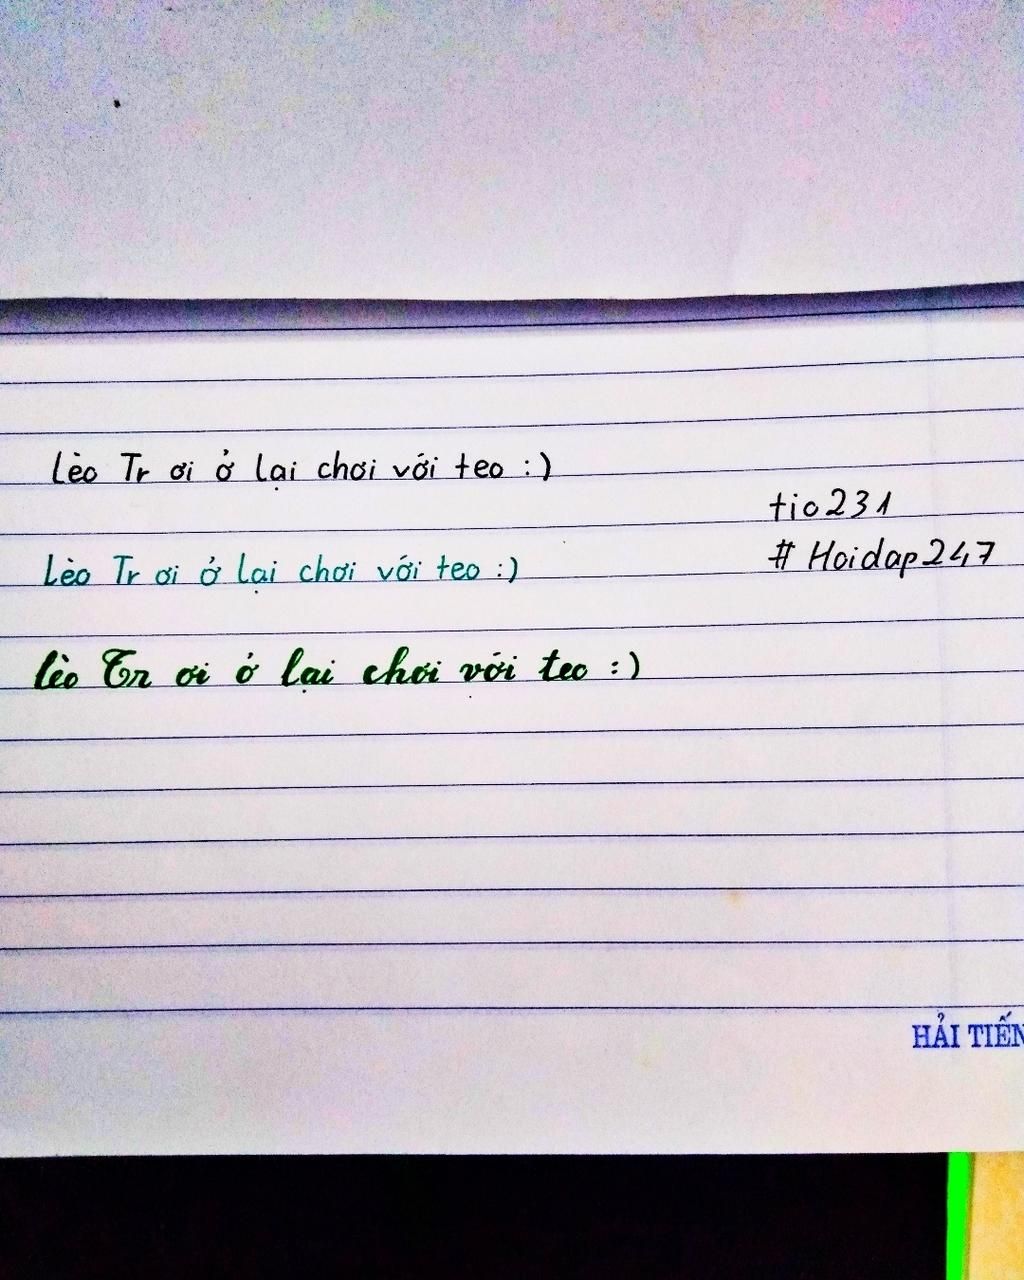 Lèo Tr ơi ở lại chơi với teo :)
tio231
# Hoidap247
Lèo Tr ơi ở lại chơi với teo :)
lèo Tr ơi ở lại chơi với teo :)
HẢI TIẾN